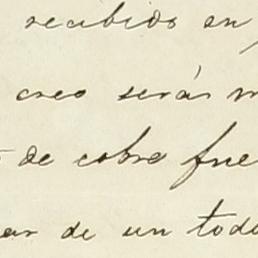 recibido en
creo serás m
de cobre fue
ar de un todo